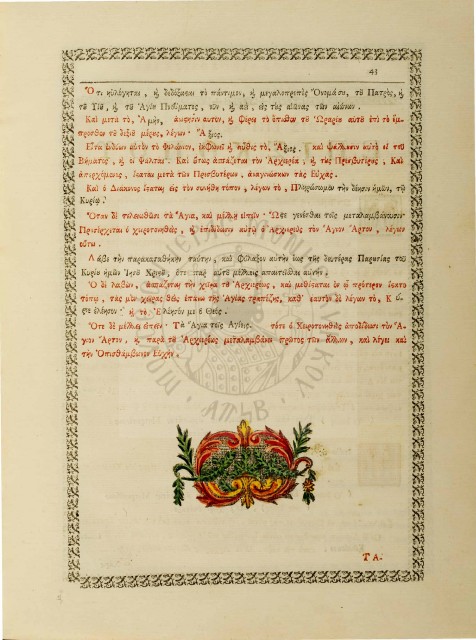 43
Ὅτι ηὐλόγηται, ᾗ δεδόξασαι τὸ πάντιμον, ᾗ μεγαλοπρεπὲς Ὄνομά σου, τῦ Πατρὸς, ᾗ
τῦ Υἱῦ, ᾗ τῦ Ἁγίυ Πνεύματος, νῦν, ᾗ ἀεὶ, εἰς τὺς αἰῶνας τῶν αἰώνων.
Καὶ μετὰ τὸ, Ἀμὴν, αὐτὸν, ᾗ φέρει τὸ ὄπισθεν τῦ Ὡραρίυ αὐτῦ ἐπὶ τὸ ἔμ-
προσθεν τῦ δεξιῦ μέρυς, λέγων· Ἄξιος.
Εἶτα διδύων αὐτὸν τὸ Φελώνιον, ἐκφωνεῖ ᾗ πᾶθις τὸ, Ἄξιος· καὶ ψάλλυσιν αὐτὸ εἰ τῦ
Βήματος, ᾗ οἱ Ψάλται. Καὶ ὕτως ἀσπάζεται τὸν Ἀρχιερέα, ᾗ τὺς Πρεσβυτέρυς, Καὶ
ἀπερχόμενος, ἵσαται μετὰ τῶν Πρεσβυτέρων, ἀναγινώσκων τὰς Εὐχάς.
Καὶ ὁ Διάκονος ἵσαται εἰς τὸν συνήθη τόπον, λέγων τὸ, Πληρώσωμεν τὴν δέησιν ἡμῶν, τῷ
Κυρίῳ.
Ὅταν δὲ τελειωθῶσι τὰ Ἅγια, καὶ μέλλῃ εἰπεῖν· Ὥστε γενέσθαι τοῖς μεταλαμβάνυσιν·
Προσέρχεται ὁ χειροτονηθεὶς, ᾗ ἐπιδίδωσιν αὐτῷ ὁ Ἀρχιερεὺς τὸν Ἅγιον Ἄρτον, λέγων
ὕτω.
Λάβε τὴν παρακαταθήκην ταύτην, καὶ φύλαξον αὐτὴν ἕως τῆς δευτέρας Παρυσίας τῦ
Κυρίυ ἡμῶν Ἰησῦ Χριςῦ, ὅτε παρ᾽ αὐτῦ μέλλεις ἀπαιτεῖσθαι αὐτήν.
Ὁ δὲ λαβὼν, ἀσπάζεται τὴν χεῖρα τῦ Ἀρχιερέως, καὶ μεθίσαται ἐν ᾧ πρότερον ἵσατο
τόπῳ, τὰς μὲν χεῖρας θεὶς ἐπάνω τῆς Ἁγίας τραπέζης, καθ᾽ ἑαυτὸν δὲ λέγων τὸ, Κύ
ριε ἐλέησον· ᾗ τὸ, Ἐλέησόν με ὁ Θεός.
Ὅτε δὲ μέλλει εἰπεῖν· Τὰ Ἅγια τοῖς Ἁγίοις. τότε ὁ Χειροτονηθεὶς ἀποδίδωσι τὸν Ἅ-
γιον Ἄρτον, ᾗ παρὰ τῦ Ἀρχιερέως μεταλαμβάνει πρῶτος τῶν ἄλλων, καὶ λέγει καὶ
τὴν Ὀπισθάμβωνον Εὐχήν.
ΤΑ.